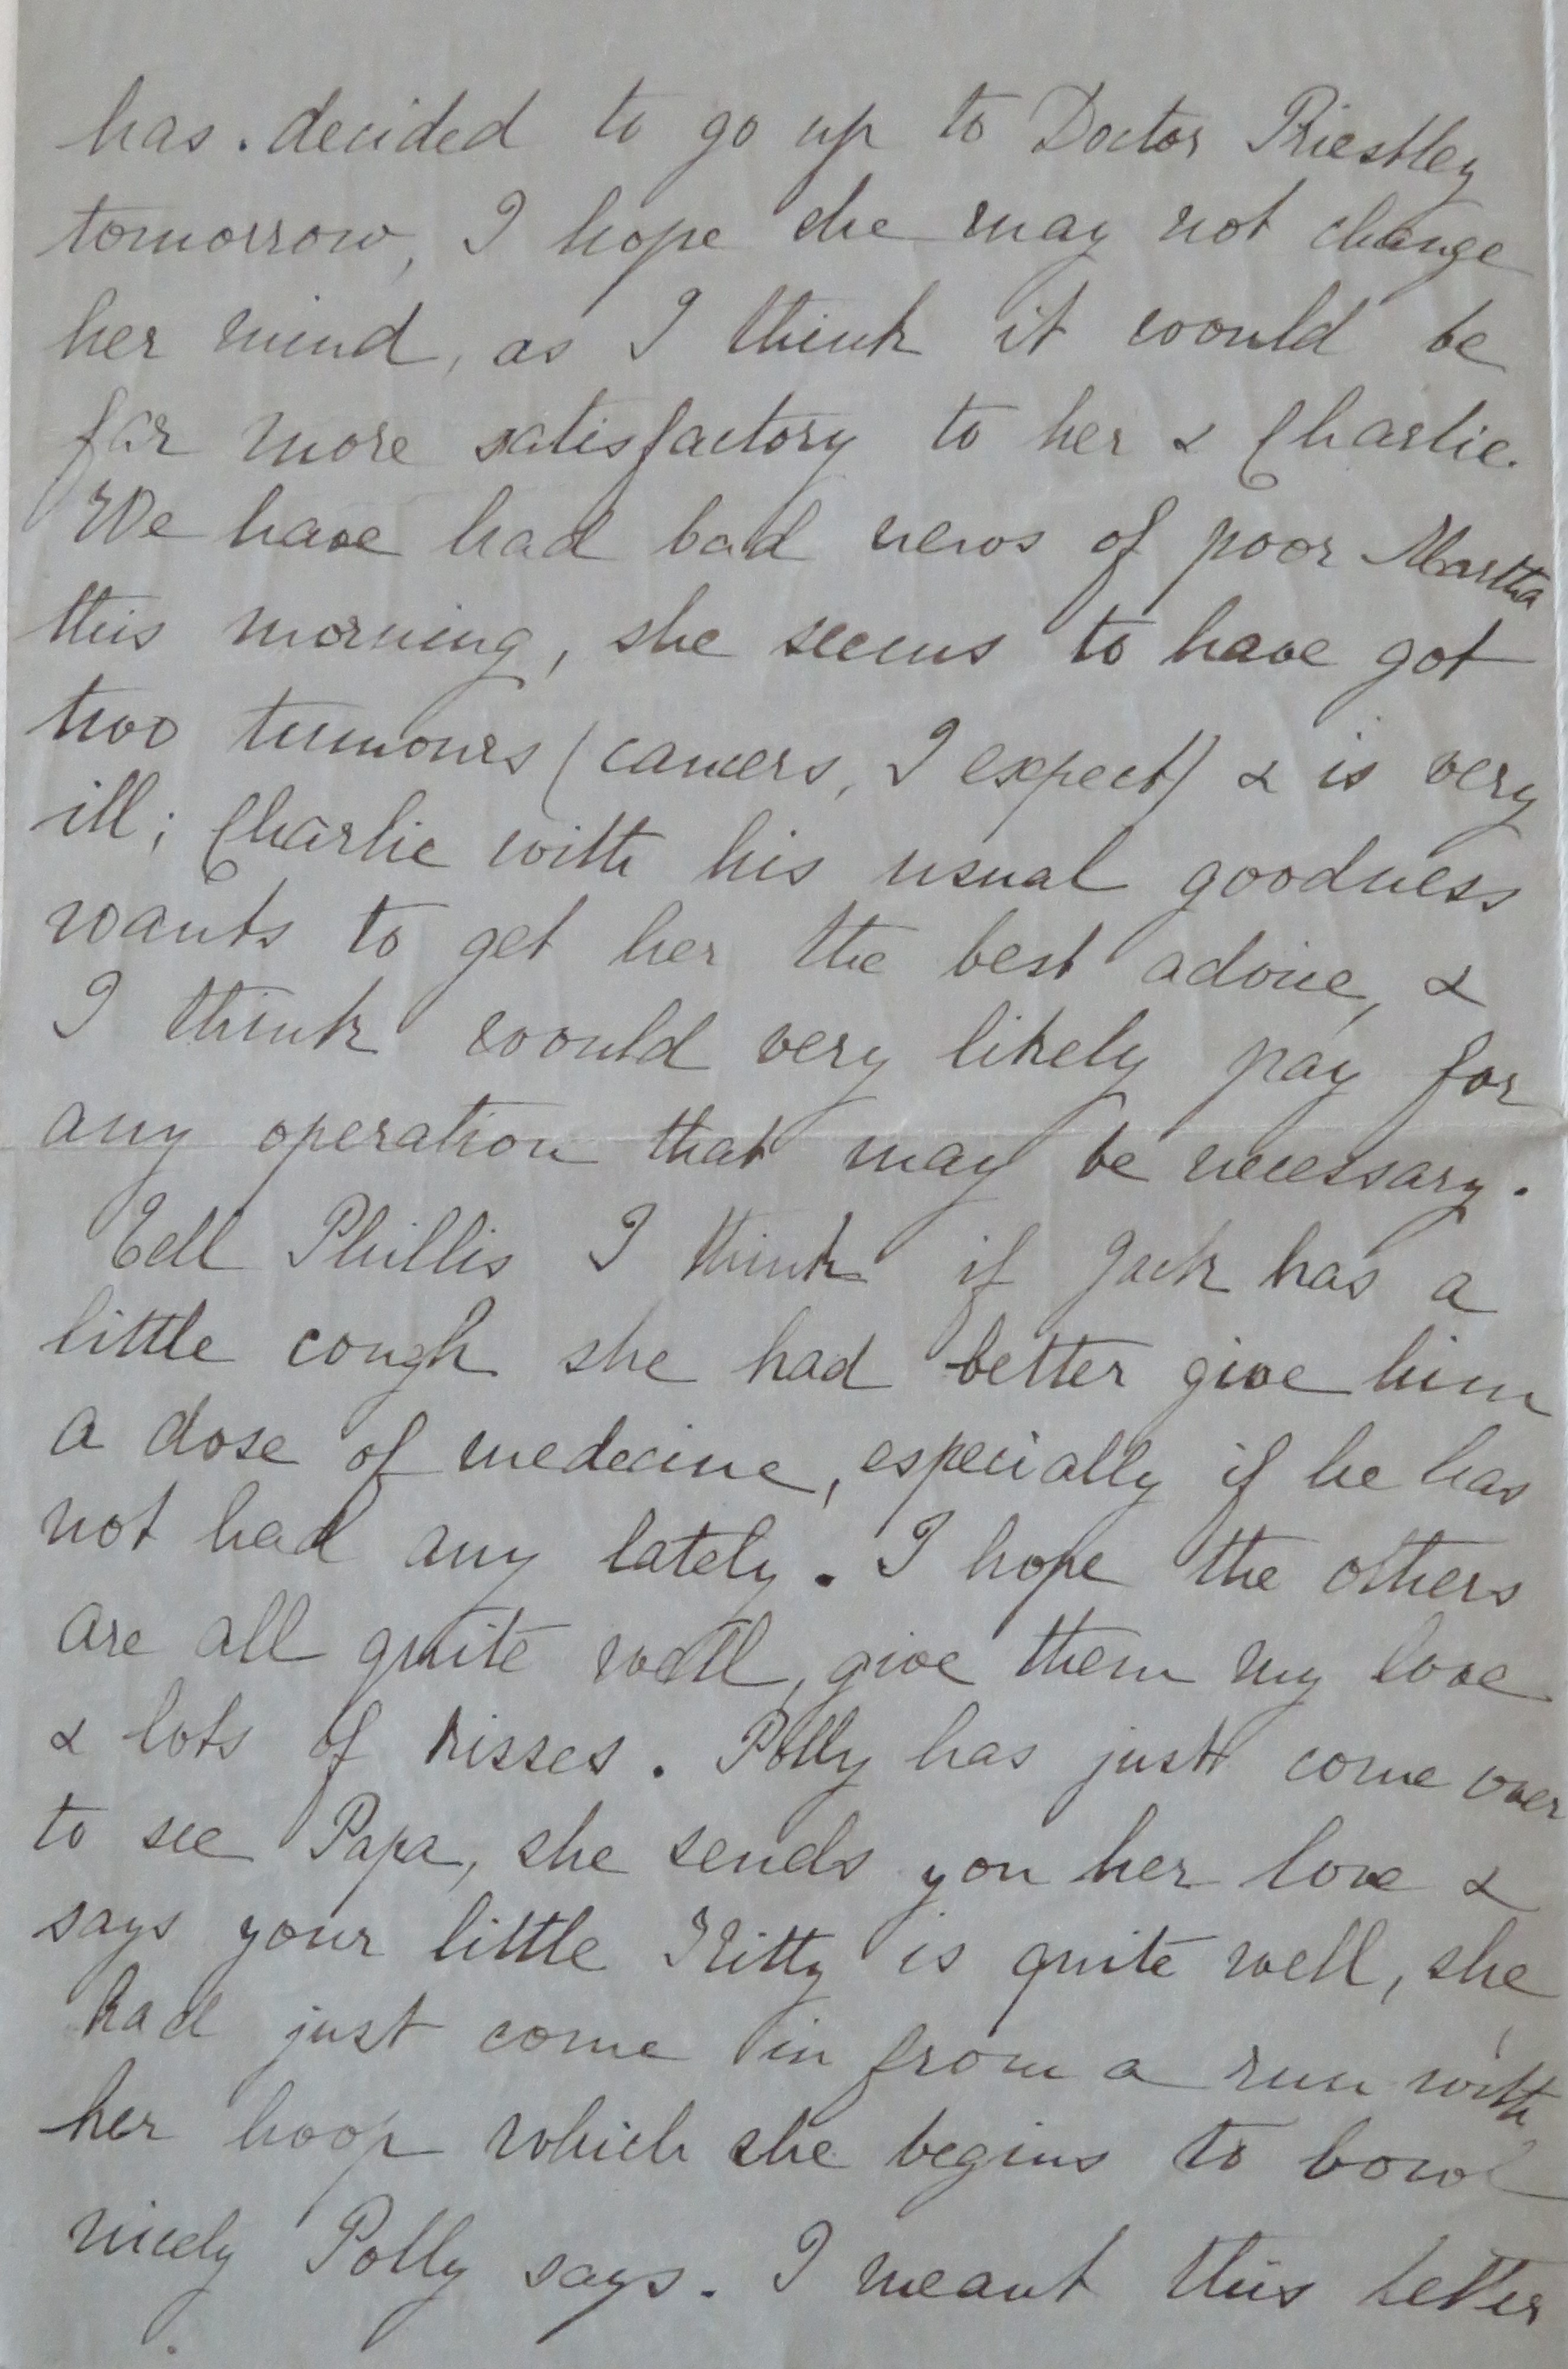 has . decided to go up to Doctor Priestley
tomorrow, I hope she may not change
her mind, as I think it would be
far more satisfactory to her & Charlie.
We have had bad news of poor Martha
this morning, she seems to have got
two tumours (cancers, I expect) & is very
ill; Charlie with his usual goodness
wants to get her the best advice, &
I think would very likely pay for
any operation that may be necessary.
Tell Phillis I think if Jack has a
little cough she had better give him
a dose of medecine, especially if he has
not had any lately. I hope the others
are all quite well, give them my love
& lots of kisses. Polly has just come over
to see Papa, she sends you her love &
says your little Kitty is quite well, she
had just come in from a run with
her hoop which she begins to bowl
nicely Polly says. I meant this letter